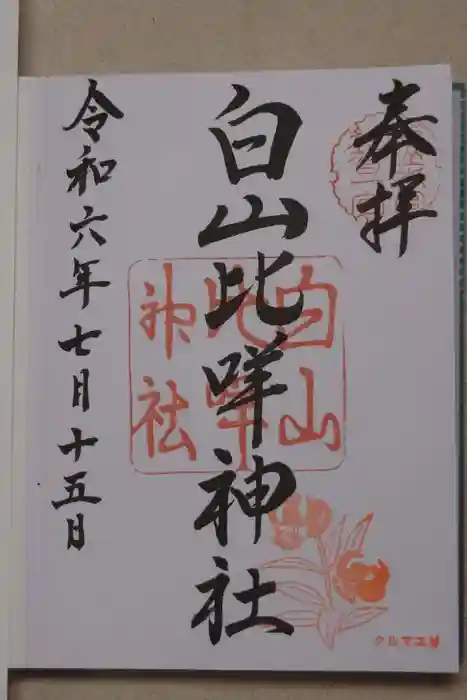 奉拝
白山比咩神社
白山
比咩
神社
令和六年七月十五日
クルマユリ